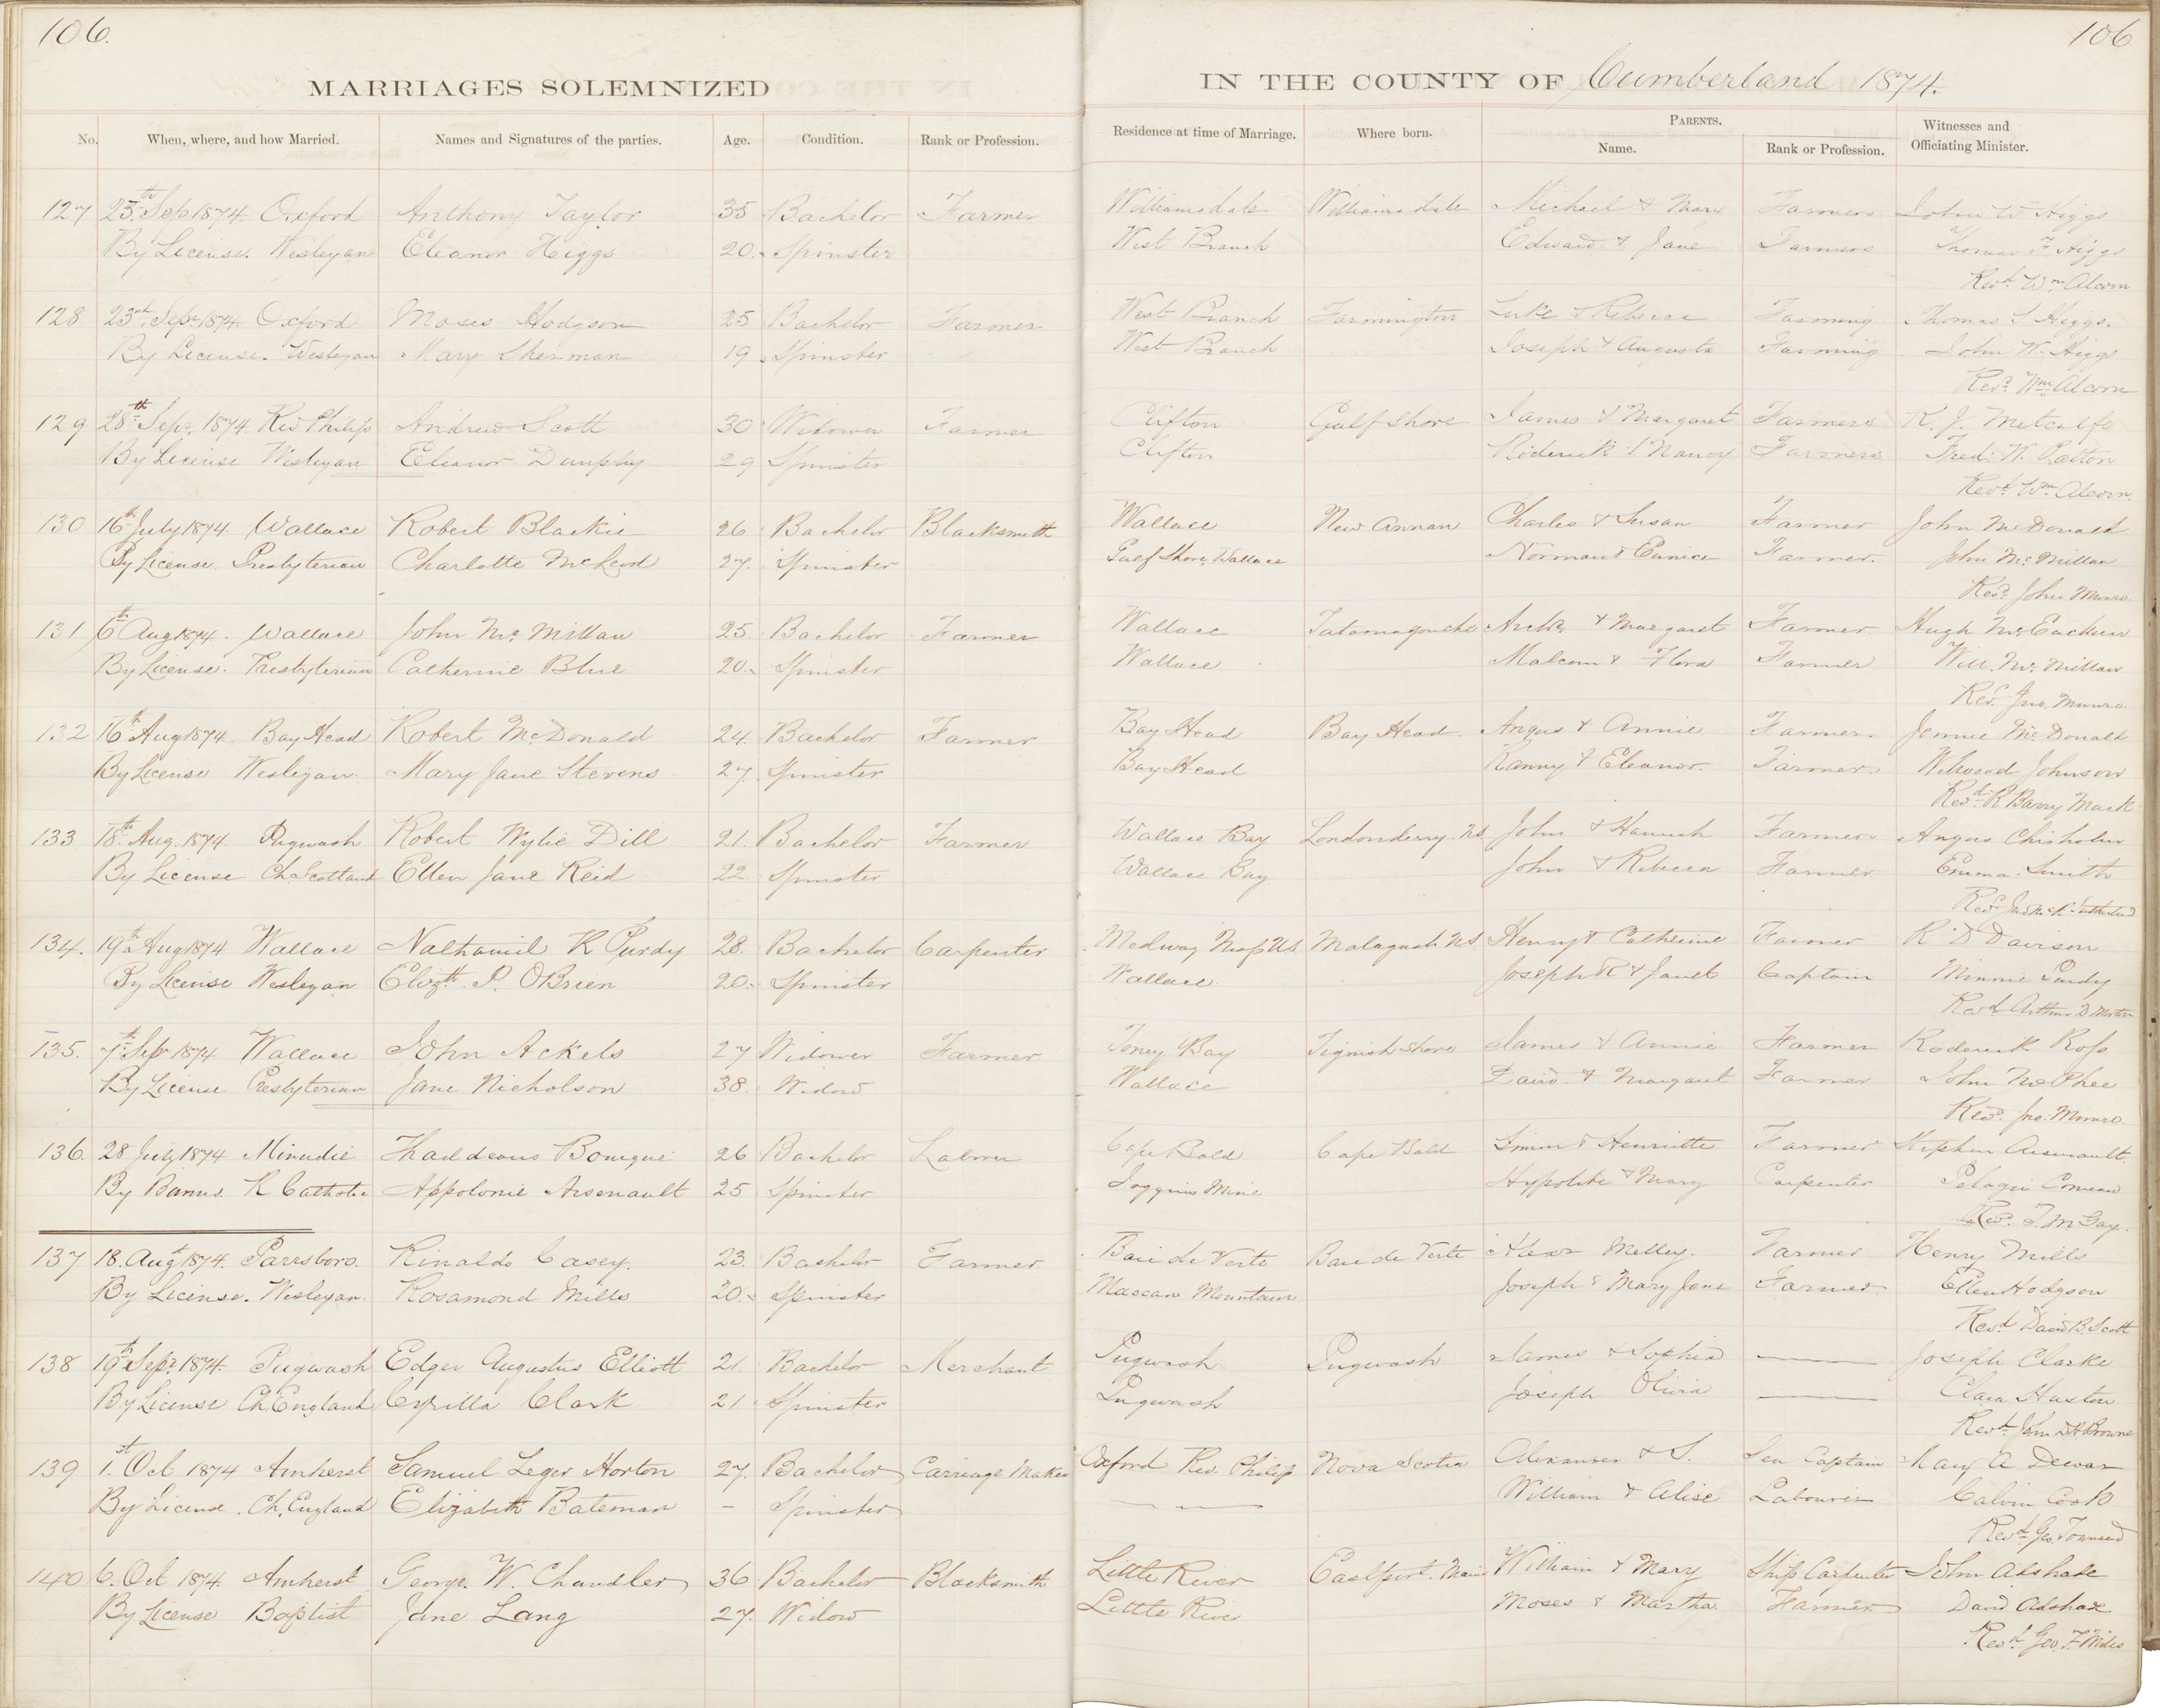 106.
106
MARRIAGES SOLEMNIZED
IN THE COUNTY OF Cumberland 1874.
No. When, where, and how Married. Names and Signatures of the parties. Age. Condition. Rank or Profession. Residence at time of Marriage. Where born. PARENTS. Name. Rank or Profession. Witnesses and Officiating Minister.
127 25th Sep 1874. Oxford Anthony Taylor 35 Bachelor Farmer Williamsdale Williamsdale Michael & Mary Farmers John W Higgs
By License. Wesleyan Eleanor Higgs 20. Spinster West Branch Edward & Jane Farmers Thomas F Higgs
Revd. Wm Alcorn
128 23rd. Sepr 1874. Oxford Moses Hodgson 25 Bachelor Farmer West Branch Farmington Luke & Rebecca Farming Thomas S Higgs.
By License. Wesleyan Mary Sherman 19 Spinster West Branch Joseph & Augusta Farming John W. Higgs
Revd. Wm Alcorn
129 28th Sepr. 1874. Riv Philip Andrew Scott 30 Widower Farmer Clifton Gulf Shore James & Margaret Farmers R. J. Metcalfe
By License Wesleyan Eleanor Dunphy 29 Spinster Clifton Roderick & Nancy Farmers Fred: W. Patton
Revd. Wm. Alcorn.
130 16th July 1874. Wallace Robert Blackie 26 Bachelor Blacksmith Wallace New Annan Charles & Susan Farmer John McDonald
By License. Presbyterian Charlotte McLeod 27. Spinster Gulf Shore, Wallace Norman & Eunice Farmer. John McMillan
Revd. John Munro.
131 6th Aug 1874. Wallace John McMillan 25. Bachelor Farmer Wallace Tatamagouche Archd. & Margaret Farmer Hugh McEachern
By License. Presbyterian Catherine Blue 20. Spinster Wallace Malcom & Flora Farmer Will. McMillan
Revd. Jno. Munro.
132 16th Aug 1874. Bay Head Robert McDonald 24. Bachelor Farmer Bay Head Bay Head. Angus & Annie Farmer. Jennie McDonald
By License Wesleyan. Mary Jane Stevens 27. Spinster Bay Head & Eleanor. Farmer. Johnson
Revd. R Barry Mack
133 18th. Aug. 1874. Pugwash Robert Wylie Dill 21. Bachelor Farmer Wallace Bay Londonderry. NS. John & Hannah Farmer Angus Chisholm
By License Ch. Scotland Ellen Jane Reid 22. Spinster Wallace Bay John & Rebecca Farmer Emma Smith
Revd.
134. 19th Aug 1874 Wallace Nathaniel K Purdy 28. Bachelor Carpenter Medway Mass US. Malagash NS. Henry & Catherine Farmer R. D Davison
By License Wesleyan Elizth. P. OBrien 20. Spinster Wallace. Joseph R & Janet Captain Minnie Purdy
Revd. Arthur D Morton
135. 7th Sepr 1874 Wallace John Ackels 27 Widower Farmer Toney Bay Tignish Shore James & Annie Farmer Roderick Ross
By License Presbyterian Jane Nicholson 38. Widow Wallace David. & Margaret Farmer John McPhee
Revd. Jno. Munro.
136. 28 July 1874 Minudie Thaddeaus Bourque 26 Bachelor Laborer Cape Bald Cape Bald Simon & Henriette Farmer Stephen Arsenault.
By Banns. R Catholic Appolonie Arsenault 25 Spinster Joggins Mine Hypolite & Mary Carpenter Pelagie Comeau
Rev. T. M Gay.
137 18. Augt 1874. Parrsboro. Rinaldo Casey. 23. Bachelor Farmer. Baie de Verte Baie de Verte Alexr Melley. Farmer Henry Mills
By License. Wesleyan. Rosamond Mills 20. Spinster Maccan Mountain Joseph & Mary Jane Farmer. Ellen Hodgson
Revd. David B. Scott
138 19th Sepr. 1874. Pugwash Edger Augustus Elliott 21. Bachelor Merchant Pugwash Pugwash James & Sophia — Joseph Clarke
By License Ch. England Cyrilla Clark 21. Spinster Pugwash Joseph Olivia — Clara Huston
Revd. John D H Browne
139 1.st Oct 1874 Amherst Samuel Leger Horton 27. Bachelor Carriage Maker Oxford Riv. Philip Nova Scotia Alexander & S. Sea Captain Mary A Dewar
By License. Ch. England Elizabeth Bateman – Spinster — William & Alise Labourer Calvin Cook
Revd. Geo. Townsend
140 6. Oct 1874 Amherst George. W. Chandler 36 Bachelor Blacksmith Little River Eastport. Main William & Mary Ship Carpenter John Adshade
By License Baptist Jane Lang 27. Widow Little River Moses & Martha. Farmer David Adshade
Revd. Geo. F Miles